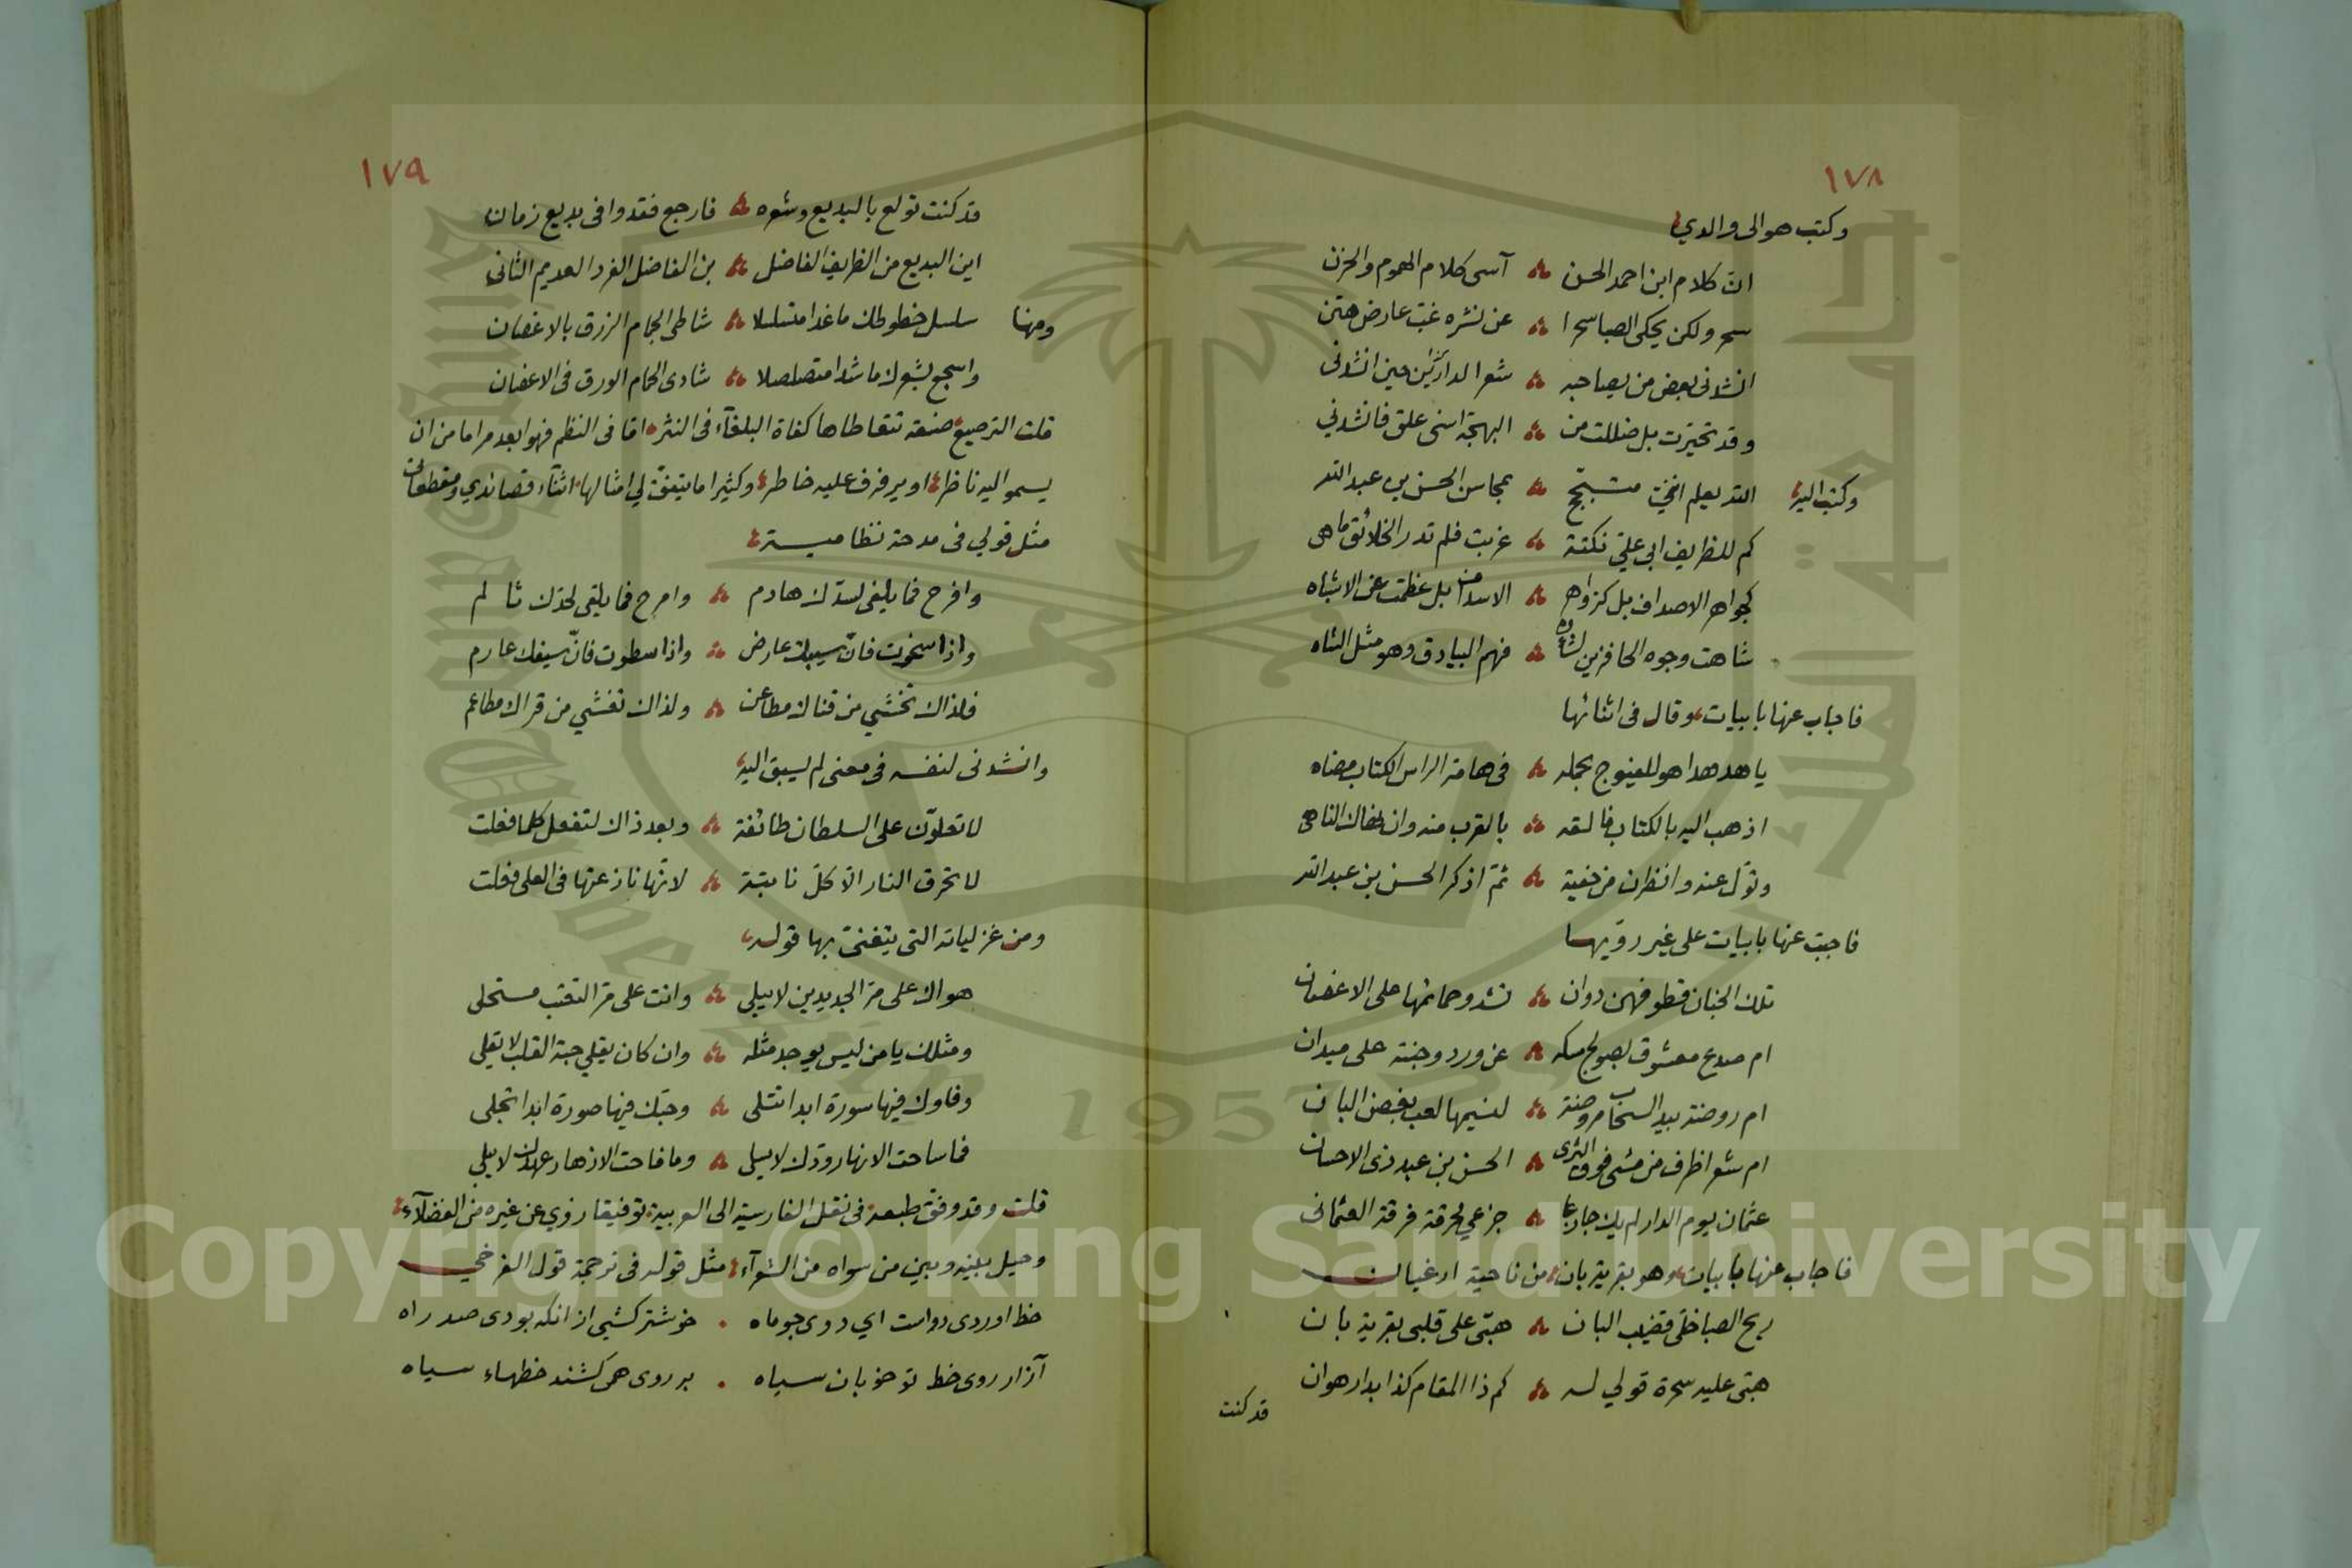 ١٧٨
وكتب هو الى والدي
ان كلام ابن احمد الحسن آسى كلام الهموم والحزن
سحر ولكن يحكى الصبا سحرا عن نشره غب عارض هتن
انشدنى بعض من يصاحبه شعرا حين انشدنى
وقد تحيرت بل ضللت من البهجة اسنى علق فانشدني
وكتب اليه الله يعلم اننى متبجح بمحاسن الحسن بن عبد الله
كم للظريف ابى علي نكتة غربت فلم تدر الخلائق ما هى
كجواهر الاصداف بل كزواهر الاسداف بل عظمت عن الاشباه
شاهت وجوه الحافزين لشاوه فهم البيادق وهو مثل الشاه
فاجاب عنها بابيات وقال فى اثنائها
يا هدهدا هو للعينوج بحمله فى هامة الراس الكتاب مضاه
اذهب اليه بالكتاب فالقه بالقرب منه وان نهاك الناهى
وتول عنه وانظرن من خفية ثم اذكر الحسن بن عبد الله
فاجبت عنها بابيات على غير رويها
تلك الجنان قطوفهن دوان تشدو حمائمها على الاغصان
ام صدغ معشوق بصولج مسكه عن ورد وجنته على ميدان
ام روضة بيد السحاب مروضة لنسيمها لعب بغصن البان
ام شعر اظرف من مشى فوق الثرى الحسن بن عبد ذى الاحسان
عثمان يوم الدار لم يك جازعا جزعي لحرقة فرقة العثمانى
فاجاب عنها بابيات وهو بقرية بان من ناحية ارغيان
ريح الصبا خلى قضيب البان هبى على قلبى بقرية بان
هبى عليه سحرة قولي له كم ذا المقام كذا بدار هوان
قد كنت
١٧٩
قد كنت تولع بالبديع وشعره فارجع فقد وافى بديع زمان
اين البديع من الظريف الفاضل بن الفاضل الفرد العديم الثانى
ومنها سلسل خطوطك ما غدا متسلسلا شاطى الجمام الزرق بالاغصان
واسجع بشعرك ما شدا متصلصلا شادى الحمام الورق فى الاغصان
قلت الترصيع صنعة تتعاطاها كفاة البلغاء فى النثر اما فى النظم فهو ابعد مراما من ان
يسمو اليه ناظر او يرفرف عليه خاطر وكثيرا ما يتفق لي امثالها اثناء قصائدي ومقطعاتى
مثل قولي فى مدحة نظامية
وافرح فما يلفى لسدك هادم وامرح فما يلقى لحدك ثالم
واذا سخوت فان سيبك عارض واذا سطوت فان سيفك عارم
فلذاك تخشي من قناك مطاعن ولذاك تغشي من قراك مطاعم
وانشدنى لنفسه فى معنى لم يسبق اليه
لا تعلون على السلطان طائفة وبعد ذاك لتفعل كلما فعلت
لا تحرق النار الا كل نابتة لانها نازعتها فى العلى فغلت
ومن غزلياته التى يتغنى بها قوله
هواك على مر الجديدين لا يبلى وانت على مر التعتب مستحلى
ومثلك يا من ليس يوجد مثله وان كان يقلي حبة القلب لا يقلى
وفاوك فيها سورة ابدا تتلى وحبك فيها صورة ابدا تجلى
فما ساحت الانهار ودك لا يسلى وما فاحت الازهار عهدك لا يبلي
قلت وقد وفق طبعه فى نقل الفارسية الى العربية توفيقا زوي عن غيره من الفضلاء
وحيل بينه وبين من سواه من الشعراء مثل قوله فى ترجمة قول الفرخي
خط اوردى رواست اي روى جو ماه خوشتر كشتى از انكه بودى صد راه
آزار روى خط تو خوبان سياه بر روى همى كشند خطهاء سياه
Copyright © King Saud University
1957